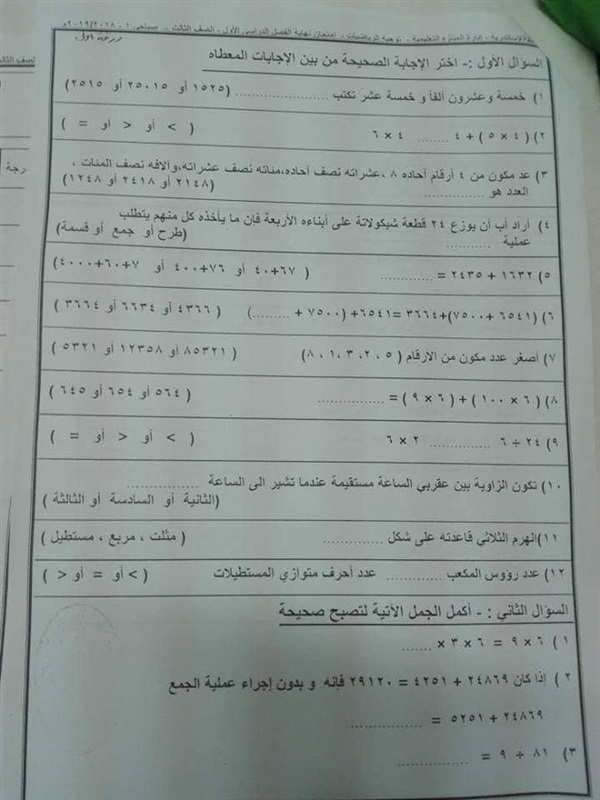 الإسكندرية - إدارة المنتزه التعليمية - توجيه الرياضيات - امتحان نهاية الفصل الدراسي الأول - الصف الثالث - صباحي ١ - ٢٠١٩/٢٠١٨م
السؤال الأول :- اختر الإجابة الصحيحة من بين الإجابات المعطاه
١) خمسة وعشرون ألفاً و خمسة عشر تكتب .................... (١٥٢٥ أو ٢٥٠١٥ أو ٢٥١٥)
٢) ( ٤ × ٥ ) + ٤ ........ ٤ × ٦ ( > أو < أو = )
٣) عدد مكون من ٤ أرقام أحاده ٨ ،عشراته نصف أحاده،مئاته نصف عشراته،وآلافه نصف المئات ،
العدد هو .................... (٢١٤٨ أو ٢٤١٨ أو ١٢٤٨)
٤) أراد أب أن يوزع ٢٤ قطعة شيكولاتة على أبناءه الأربعة فإن ما يأخذه كل منهم يتطلب
عملية ............ (طرح أو جمع أو قسمة)
٥) ١٦٣٢ + ٢٤٣٥ = .............. ( ٦٧+٤٠ أو ٧٦+٤٠٠ أو ٧+٦٠+٤٠٠٠)
٦) (٦٥٤١ +٧٥٠٠)+٣٦٦٤ =٦٥٤١+ (٧٥٠٠ + .........) ( ٤٣٦٦ أو ٦٦٣٤ أو ٣٦٦٤ )
٧) أصغر عدد مكون من الأرقام ( ٥ ،٢ ،٣ ،١ ،٨ ) ( ٨٥٣٢١ أو ١٢٣٥٨ أو ٥٣٢١ )
٨) ( ٦ × ١٠٠ ) + ( ٦ × ٩ ) = .............. ( ٥٦٤ أو ٦٥٤ أو ٦٤٥ )
٩) ٢٤ ÷ ٦ ........ ٢ × ٦ ( > أو < أو = )
١٠) تكون الزاوية بين عقربي الساعة مستقيمة عندما تشير الى الساعة ..............
(الثانية أو السادسة أو الثالثة )
١١)الهرم الثلاثي قاعدته على شكل .............. ( مثلث ، مربع ، مستطيل )
١٢) عدد رؤوس المكعب ............ عدد أحرف متوازي المستطيلات ( > أو = أو < )
السؤال الثاني :- أكمل الجمل الآتية لتصبح صحيحة
١ ) ٦ × ٩ = ٦ × ٣ × .......
٢ ) إذا كان ٢٤٨٦٩ + ٤٢٥١ = ٢٩١٢٠ فإنه و بدون إجراء عملية الجمع
٢٤٨٦٩ + ٥٢٥١ = ............
٣) ٨١ ÷ ٩ = ..............